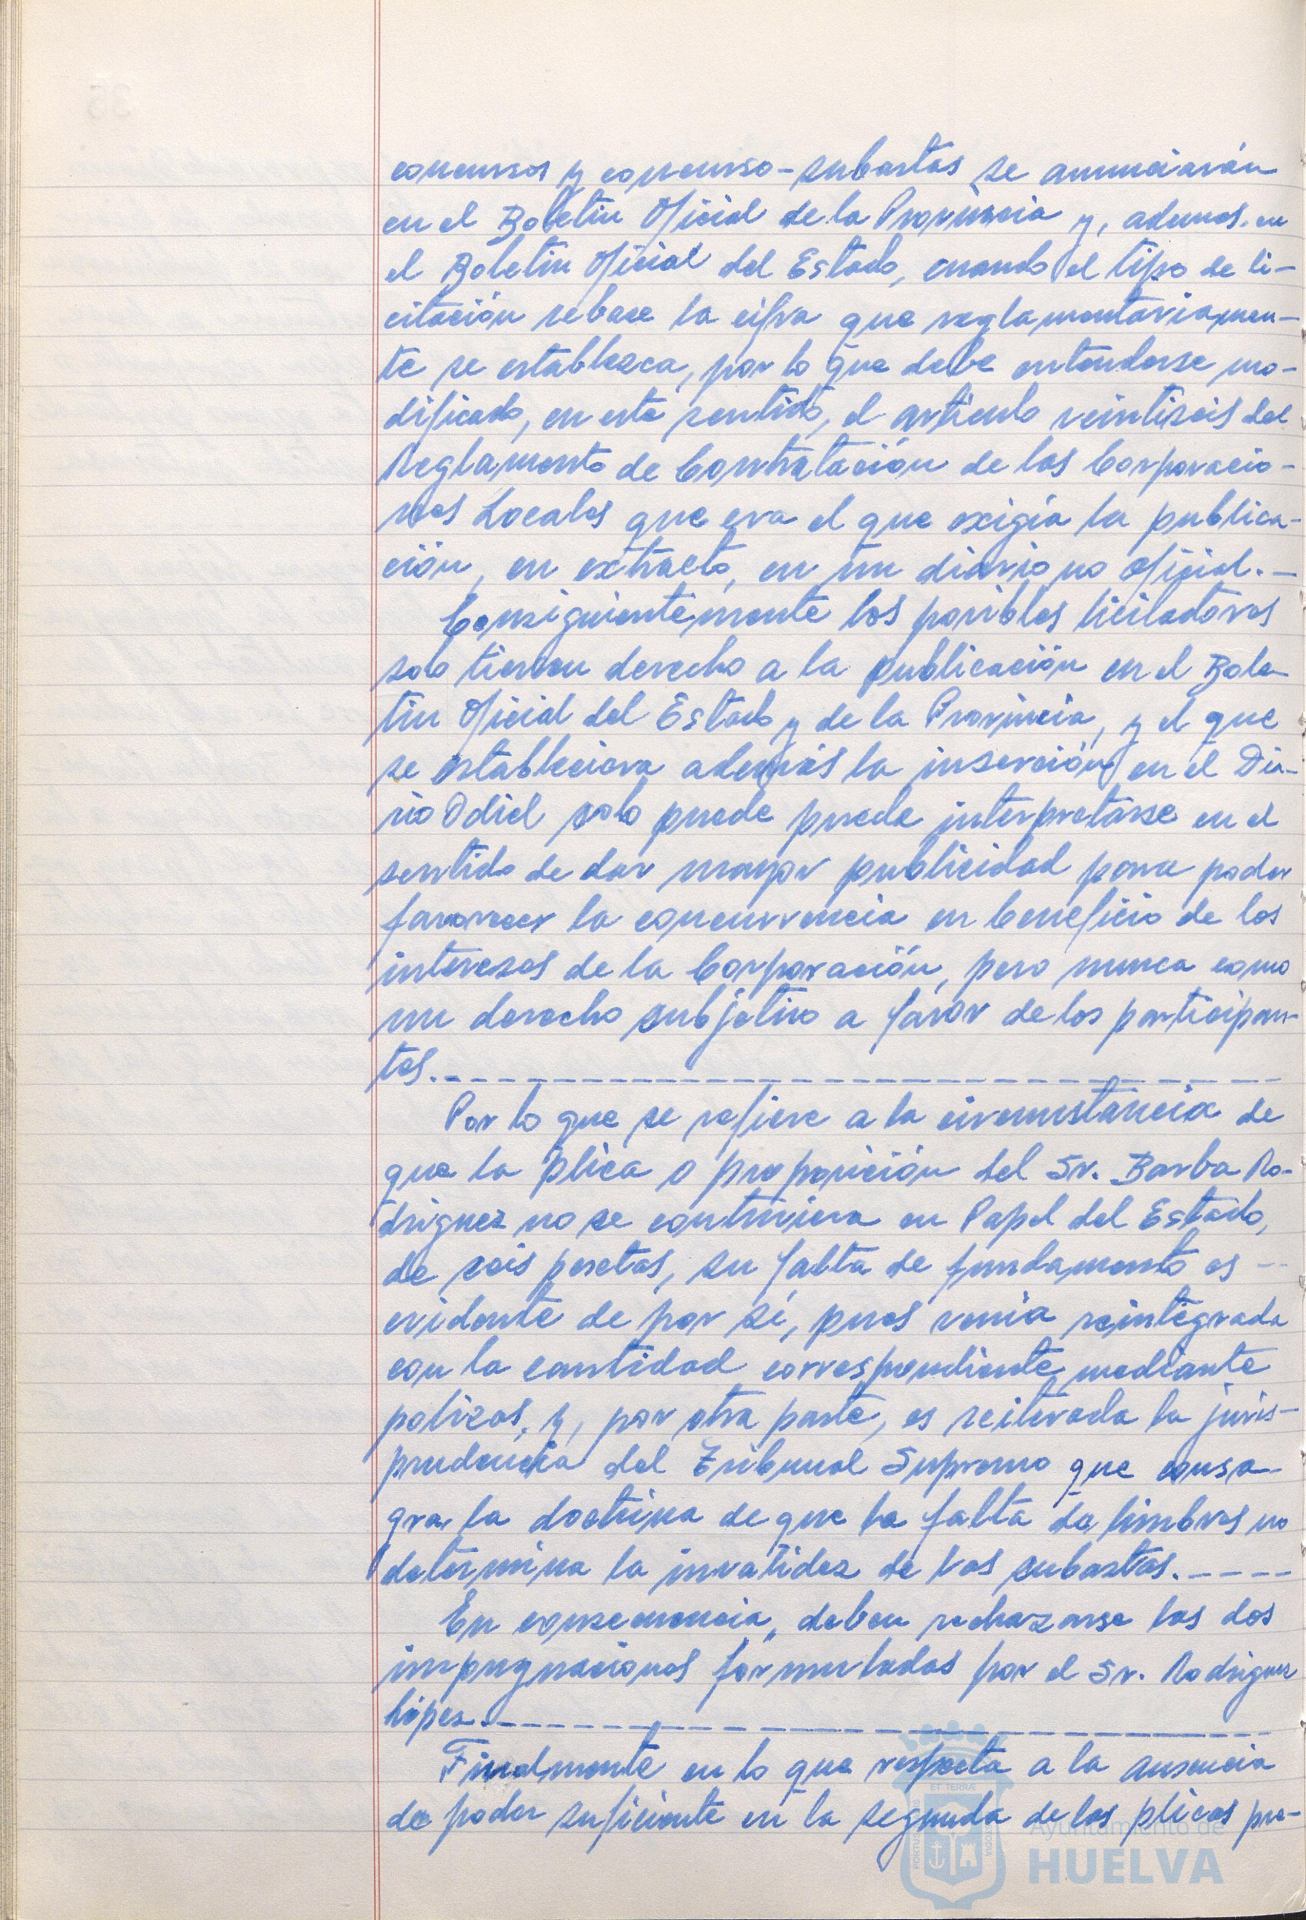 concursos y concurso-subastas se anunciarán
en el Boletín Oficial de la Provincia y, además en
el Boletín Oficial del Estado, cuando el tipo de li-
citación rebase la cifra que reglamentariamen-
te se establezca, por lo que debe entenderse mo-
dificado, en este sentido, el artículo veintiseis del
Reglamento de Contratación de las Corporacio-
nes Locales que era el que exigía la publica-
ción, en extracto, en un diario no oficial.-
Consiguientemente los posibles licitadores
solo tienen derecho a la publicación en el Bole-
tín Oficial del Estado y de la Provincia, y el que
se estableciera además la inserción en el Dia-
rio Odiel solo puede puede interpretarse en el
sentido de dar mayor publicidad para poder
favorecer la concurrencia en beneficio de los
intereses de la Corporación, pero nunca como
un derecho subjetivo a favor de los participan-
tes.-
Por lo que se refiere a la circunstancia de
que la plica o proposición del Sr. Barba Ro-
driguez no se contuviera en Papel del Estado,
de seis pesetas, su falta de fundamento es --
evidente de por sí, pues venia reintegrada
con la cantidad correspondiente mediante
polizas, y, por otra parte, es reiterada la juris-
prudencia del Tribunal Supremo que consa-
gra la doctrina de que la falta de timbres no
determina la invalidez de las subastas.----
En consecuencia, deben rechazarse las dos
impugnaciones formuladas por el Sr. Rodriguez
López.-
Finalmente en lo que respecta a la ausencia
de poder suficiente en la segunda de las plicas pre-
Ayuntamiento de
HUELVA